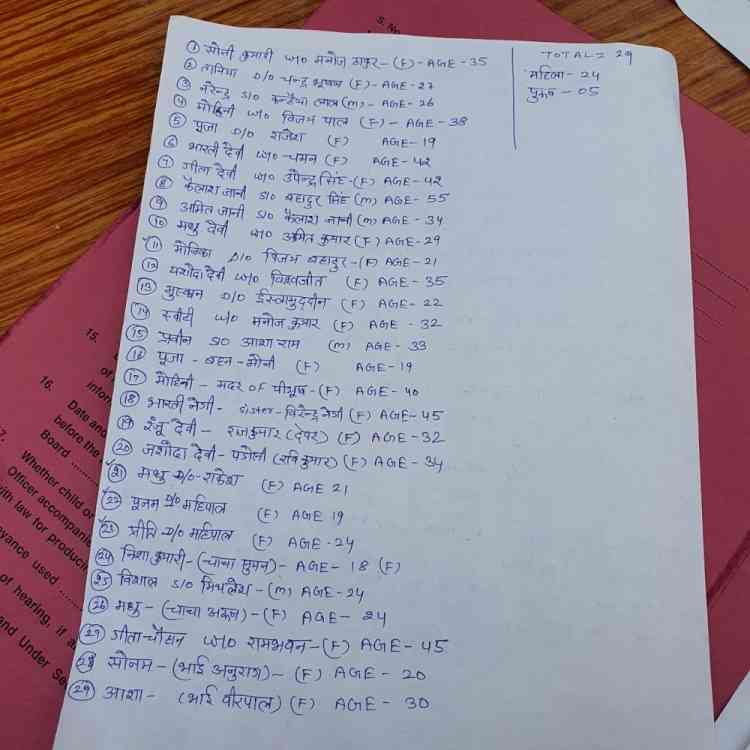 ① सोनी कुमारी W/O मनोज ठाकुर - (F) - AGE - 35
② तानिया D/O चन्द्र भूषण (F) - AGE - 27
③ नरेन्द्र S/O कन्हैया लाल (M) - AGE - 26
④ मोहिनी W/O विजय पाल (F) - AGE - 38
⑤ पूजा D/O राजेश (F) AGE - 19
⑥ भारती देवी W/O - चमन (F) AGE - 42
⑦ गीता देवी W/O उपेन्द्र सिंह - (F) AGE - 42
⑧ कैलाश जानी S/O बहादुर सिंह (M) AGE - 55
⑨ अमित जानी S/O कैलाश जानी (M) AGE - 34
⑩ मधु देवी W/O अमित कुमार (F) AGE - 29
⑪ मोनिका D/O विजय बहादुर - (F) AGE - 21
⑫ यशोदा देवी W/O विश्वजीत (F) AGE - 35
⑬ मुस्कान D/O ईस्लामुद्दीन (F) AGE - 22
⑭ स्वीटी W/O मनोज कुमार (F) AGE - 32
⑮ प्रवीन S/O आशा राम (M) AGE - 33
⑯ पूजा - बहन - मोनी (F) AGE - 19
⑰ मोहिनी - मदर OF पीयूष - (F) AGE - 40
⑱ भारती नेगी - विरेन्द्र नेगी (F) AGE - 45
⑲ रंजू देवी - राजकुमार (देवर) (F) AGE - 32
⑳ जशोदा देवी - पडोसी (रवि कुमार) (F) AGE - 34
㉑ मधु D/O - राकेश (F) AGE 21
㉒ पूनम D/O महिपाल (F) AGE 19
㉓ प्रीति D/O महिपाल (F) AGE - 24
㉔ निशा कुमारी - (चाचा सुमन) - AGE - 18 (F)
㉕ विशाल S/O मिथलेश - (M) AGE - 24
㉖ मधु - (चाचा अरुन) - (F) AGE - 24
㉗ गीता चौसन W/O रामभवन - (F) AGE - 45
㉘ सोनम - (भाई अनुराग) - (F) AGE - 20
㉙ आशा - (भाई वीरपाल) (F) AGE - 30
TOTAL = 29
महिला - 24
पुरुष - 05
S. No
15.
of
infor
16. Date and
before the
Board
Whether child or
Officer accompani
ith law for produc
eyance used
of hearing, if a
nd Under Se